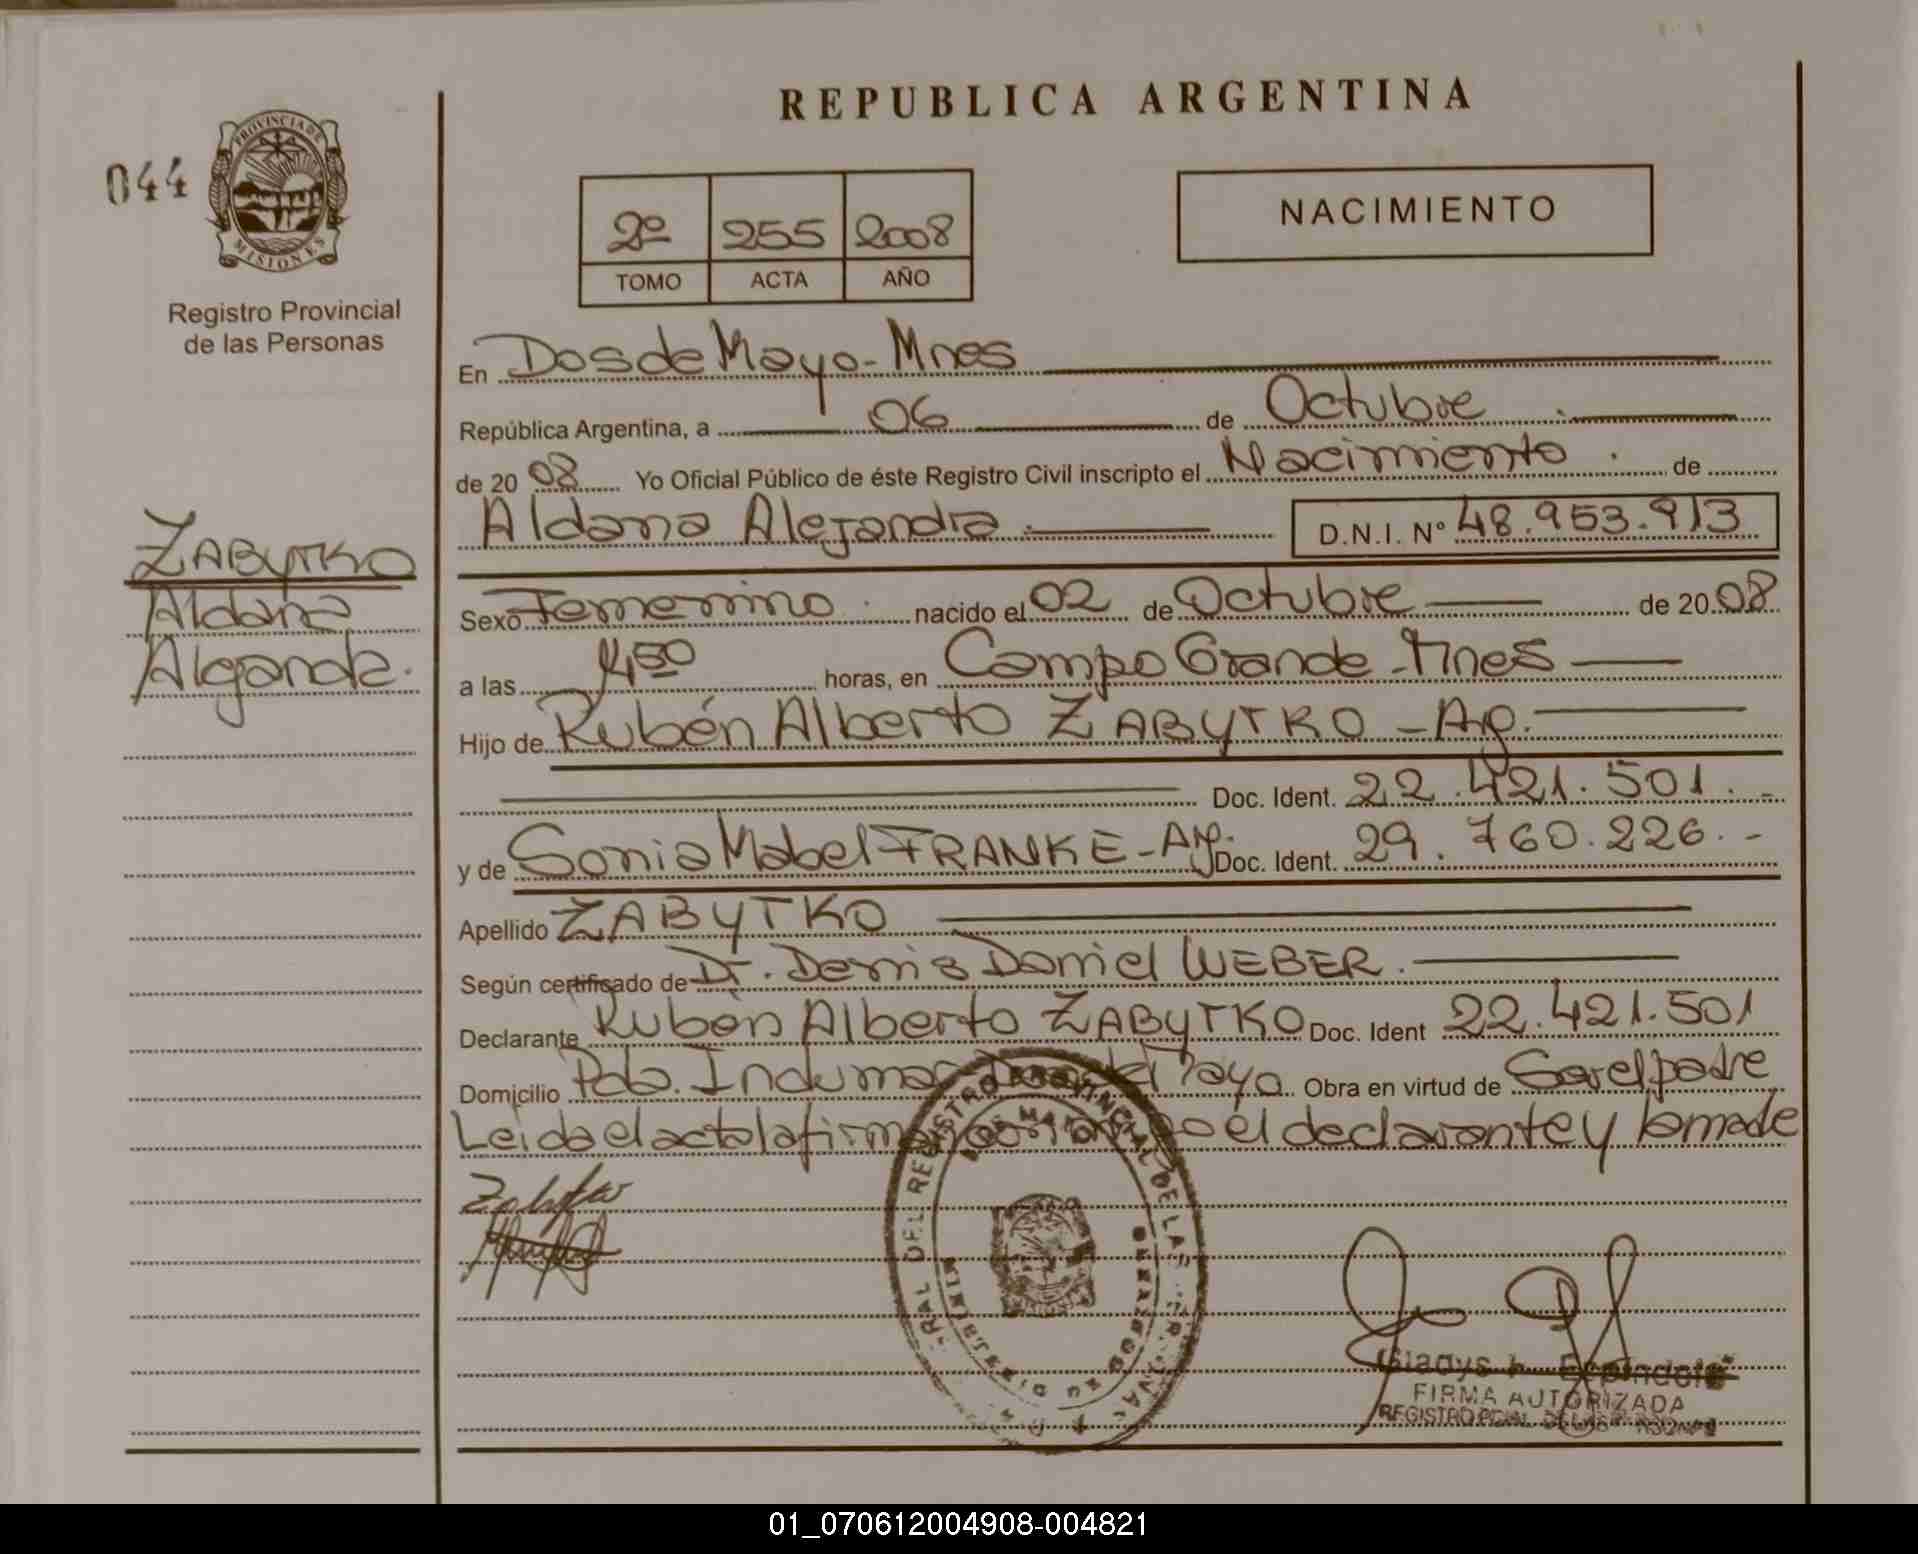 REPUBLICA ARGENTINA
044
PROVINCIA DE
MISIONES
Registro Provincial
de las Personas
2º 255 2008
TOMO ACTA AÑO
NACIMIENTO
En Dos de Mayo-Mnes
República Argentina, a 06 de Octubre
de 20 08 Yo Oficial Público de éste Registro Civil inscripto el Nacimiento de
Aldana Alejandra D.N.I. Nº 48.953.913
ZABYTKO
Aldana
Alejandra.
Sexo Femenino nacido el 02 de Octubre de 20 08
a las horas, en Campo Grande-Mnes
Hijo de Rubén Alberto ZABYTKO - Ag.
Doc. Ident. 22.421.501.-
y de Sonia Mabel FRANKE - Ag. Doc. Ident. 29.760.226.-
Apellido ZABYTKO
Según certificado de Dr. Denis Daniel WEBER.
Declarante Rubén Alberto ZABYTKO Doc. Ident 22.421.501
Domicilio Pdo. Indumar Dos de Mayo Obra en virtud de Ser el padre
Leida el acta la firma conmigo el declarante y la madre
Zabytko
Gladys Espindola
FIRMA AUTORIZADA
REGISTRO PCIAL DE LAS PERSONAS
01_070612004908-004821